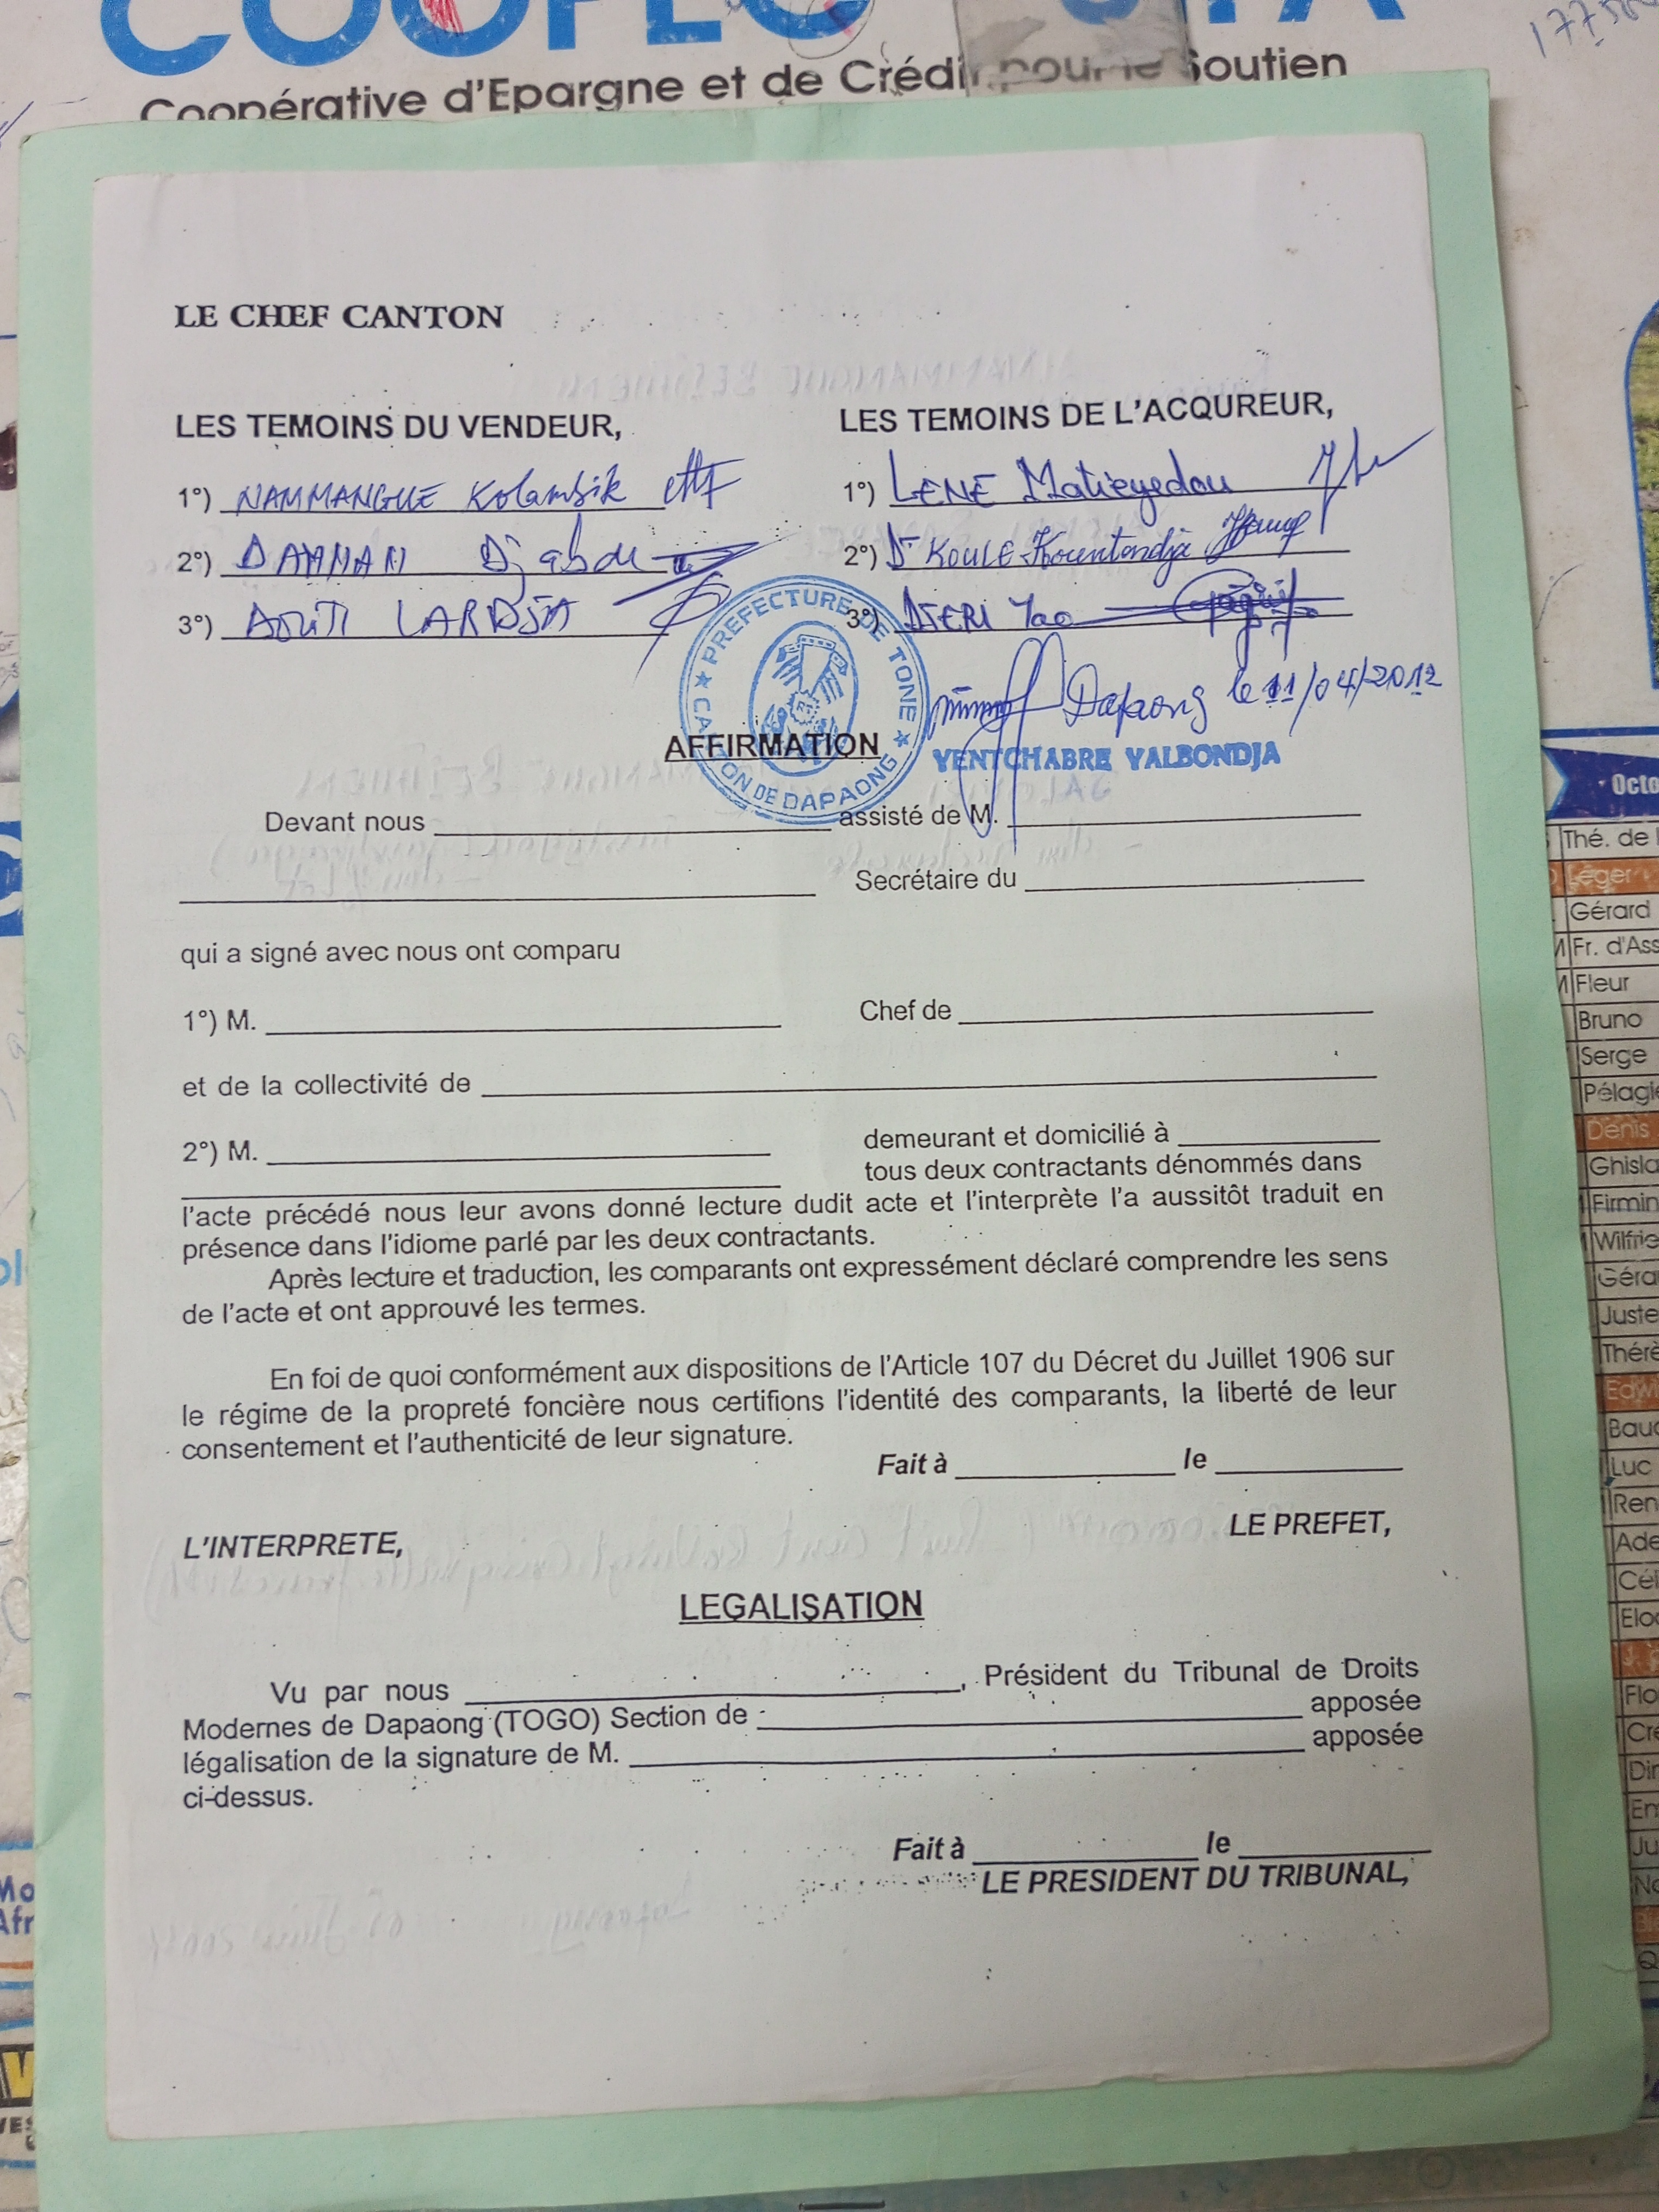 Coopérative d'Epargne et de Crédit pour le Soutien
LE CHEF CANTON
LES TEMOINS DU VENDEUR,
1°) NAMMANGUE Kolambik
2°) DAMMANI Djabdu
3°) AOUTI LARDJA
LES TEMOINS DE L'ACQUREUR,
1°) LENE Matieyedou
2°) Dr KOULE Kountondja
3°) DJERI Yao
PREFECTURE DE TONE
CANTON DE DAPAONG
Dapaong le 11/04/2012
YENTCHABRE YALBONDJA
AFFIRMATION
Devant nous assisté de M.
Secrétaire du
qui a signé avec nous ont comparu
1°) M. Chef de
et de la collectivité de
2°) M. demeurant et domicilié à
tous deux contractants dénommés dans
l'acte précédé nous leur avons donné lecture dudit acte et l'interprète l'a aussitôt traduit en
présence dans l'idiome parlé par les deux contractants.
Après lecture et traduction, les comparants ont expressément déclaré comprendre les sens
de l'acte et ont approuvé les termes.
En foi de quoi conformément aux dispositions de l'Article 107 du Décret du Juillet 1906 sur
le régime de la propreté foncière nous certifions l'identité des comparants, la liberté de leur
consentement et l'authenticité de leur signature.
Fait à le
L'INTERPRETE, LE PREFET,
LEGALISATION
Vu par nous , Président du Tribunal de Droits
Modernes de Dapaong (TOGO) Section de apposée
légalisation de la signature de M. apposée
ci-dessus.
Fait à le
LE PRESIDENT DU TRIBUNAL,
Octo
Thé. de
Léger
Gérard
Fr. d'Ass
Fleur
Bruno
Serge
Pélagie
Denis
Ghisla
Firmin
Wilfrie
Géra
Juste
Thérè
Edwi
Baud
Luc
Ren
Ade
Cél
Elo
Flo
Cré